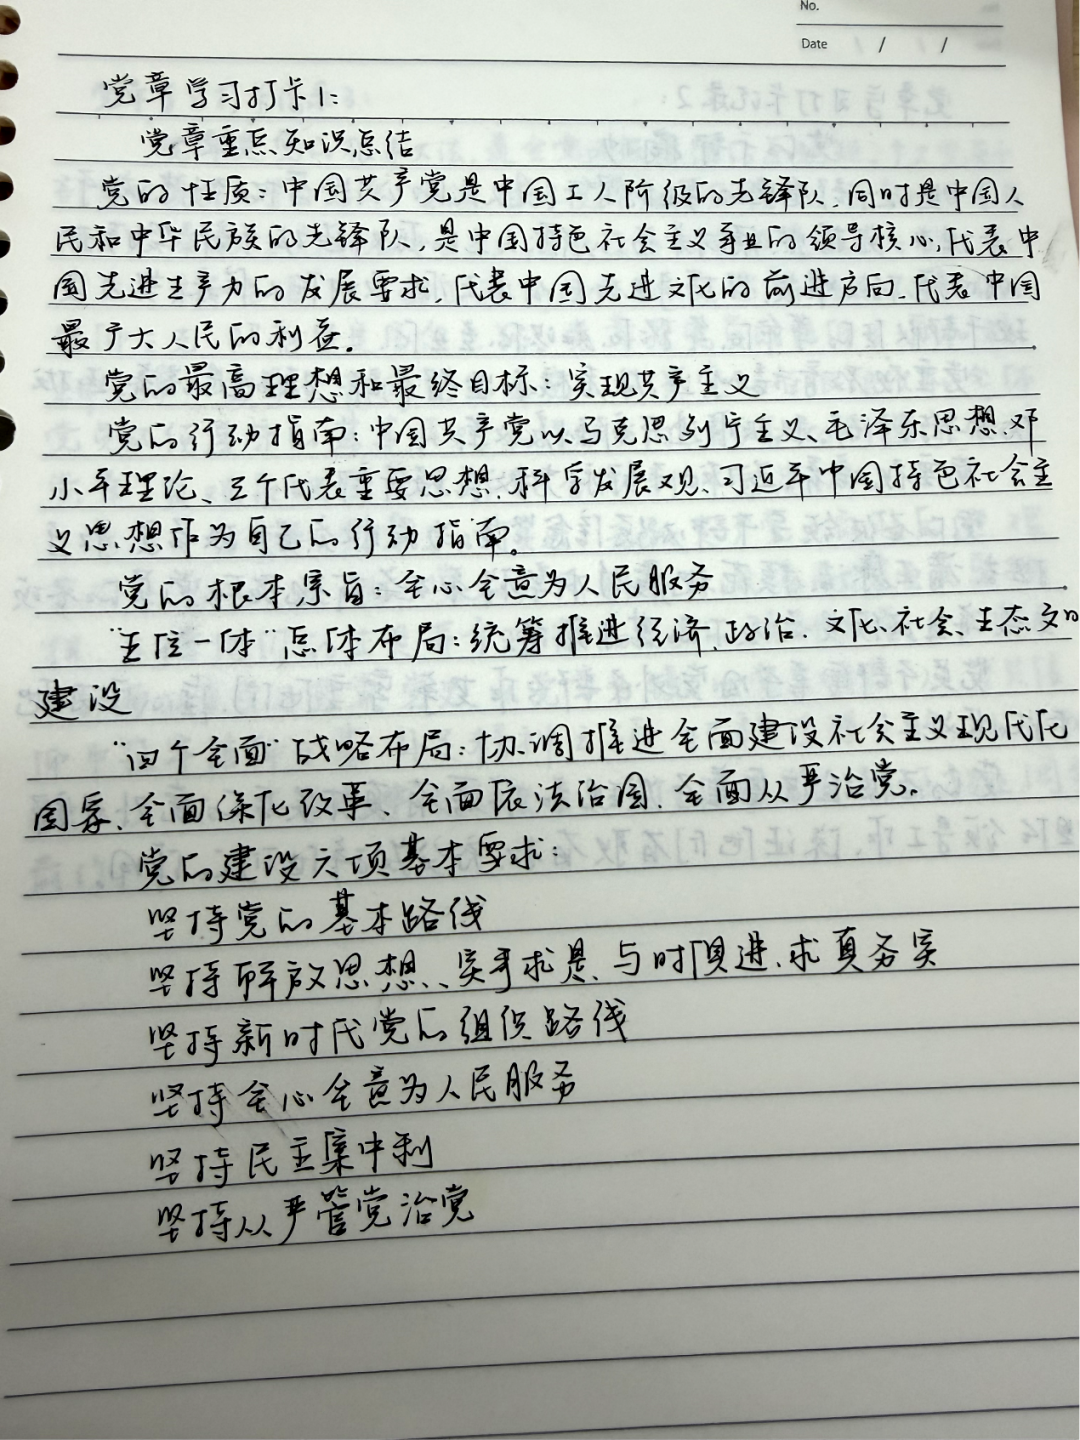 No.
Date / /
党章学习打卡1:
党章重点知识总结
党的性质:中国共产党是中国工人阶级的先锋队,同时是中国人
民和中华民族的先锋队,是中国特色社会主义事业的领导核心,代表中
国先进生产力的发展要求,代表中国先进文化的前进方向,代表中国
最广大人民的利益。
党的最高理想和最终目标:实现共产主义
党的行动指南:中国共产党以马克思列宁主义、毛泽东思想、邓
小平理论、三个代表重要思想、科学发展观、习近平中国特色社会主
义思想作为自己的行动指南。
党的根本宗旨:全心全意为人民服务
"五位一体"总体布局:统筹推进经济、政治、文化、社会、生态文明
建设
"四个全面"战略布局:协调推进全面建设社会主义现代化
国家、全面深化改革、全面依法治国、全面从严治党。
党的建设六项基本要求:
坚持党的基本路线
坚持解放思想、实事求是、与时俱进、求真务实
坚持新时代党的组织路线
坚持全心全意为人民服务
坚持民主集中制
坚持从严管党治党